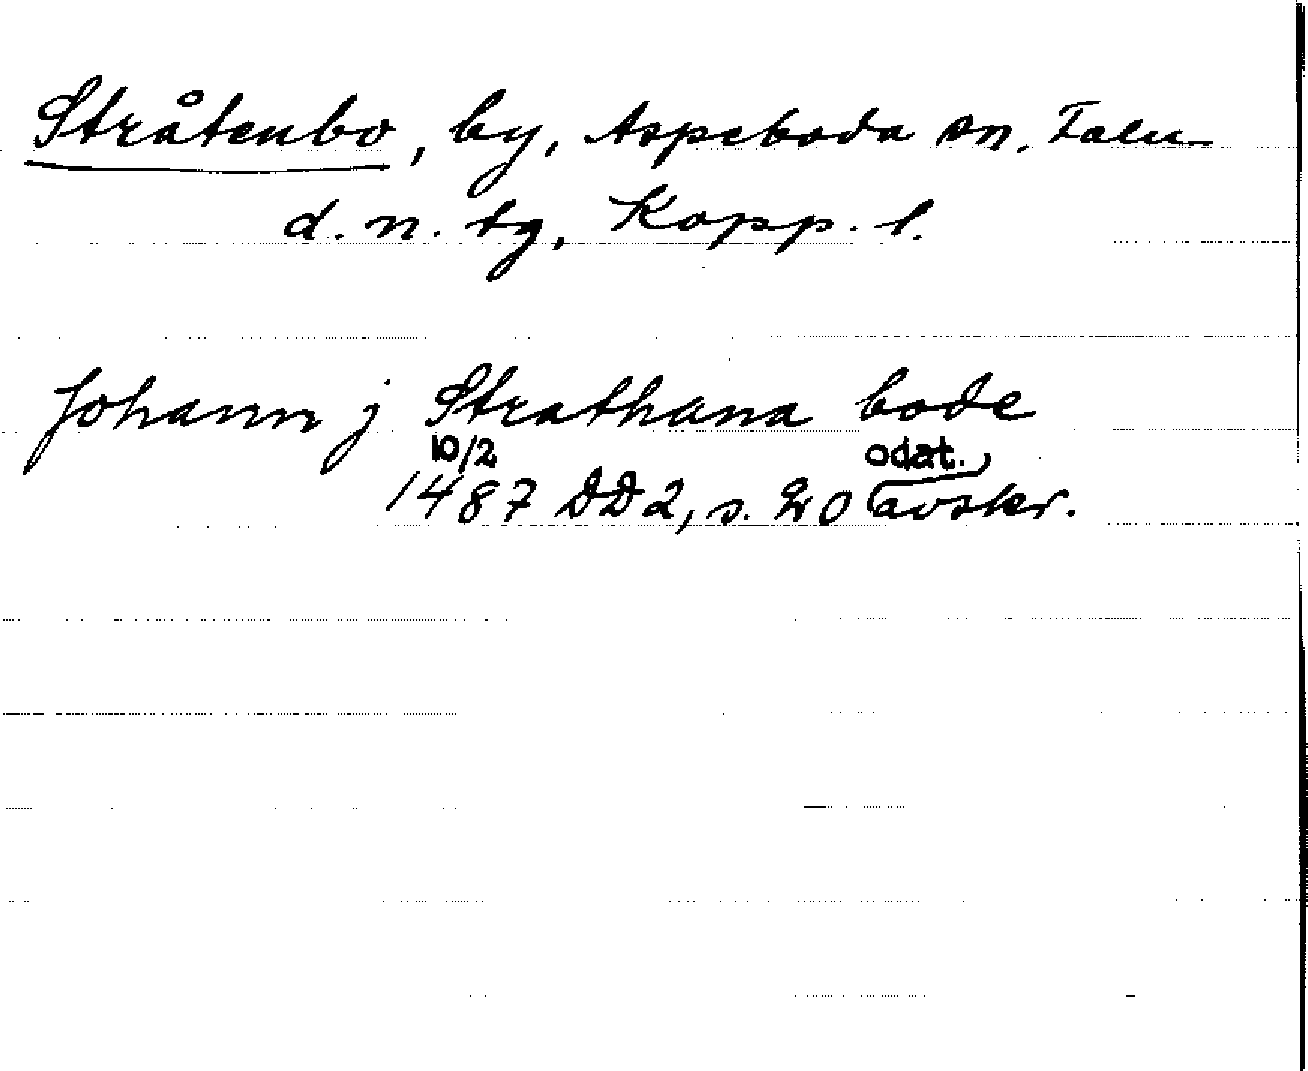 Stråtenbo, by, Aspeboda sn, Falu
d. n. tg, Kopp. l.
Johann j Strathana bode
10/2 odat.
1487 DD2, s. 220 (avskr.